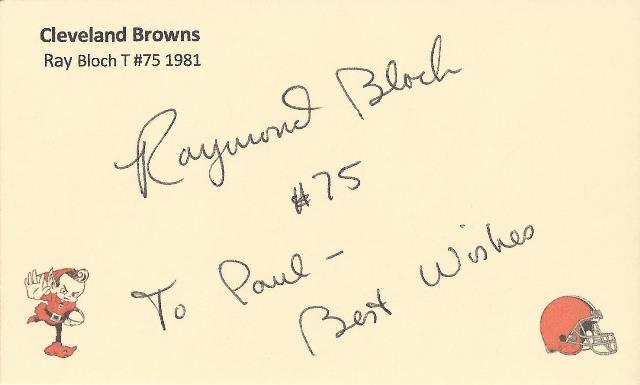 Cleveland Browns
Ray Bloch T #75 1981
Raymond Bloch
#75
To Paul -
Best Wishes